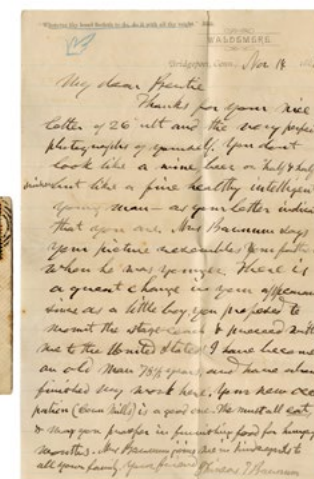 "Whatsoever thy hand findeth to do, do it with all thy might."
WALDEMERE
Bridgeport, Conn., Nov 14
My dear Bertie
Thanks for your nice
letter of 26' ult and the very perfect
photographs of yourself. You don't
look like a wine, beer or half & half
but like a fine healthy intelligent
young man — as your letter indicates
that you are. Mrs Barnum says
your picture resembles your father
when he was younger. There is
a great change in your appearance
since as a little boy you proposed to
mount the stage coach & proceed with
me to the United States. I have become
an old man 78½ years, and have about
finished my work here. Your new occu
pation (Corn Mills) is a good one. We must all eat,
& may you prosper in furnishing food for hungry
mouths. Mrs Barnum joins me in kind regards to
all your family Your friend Phineas T Barnum